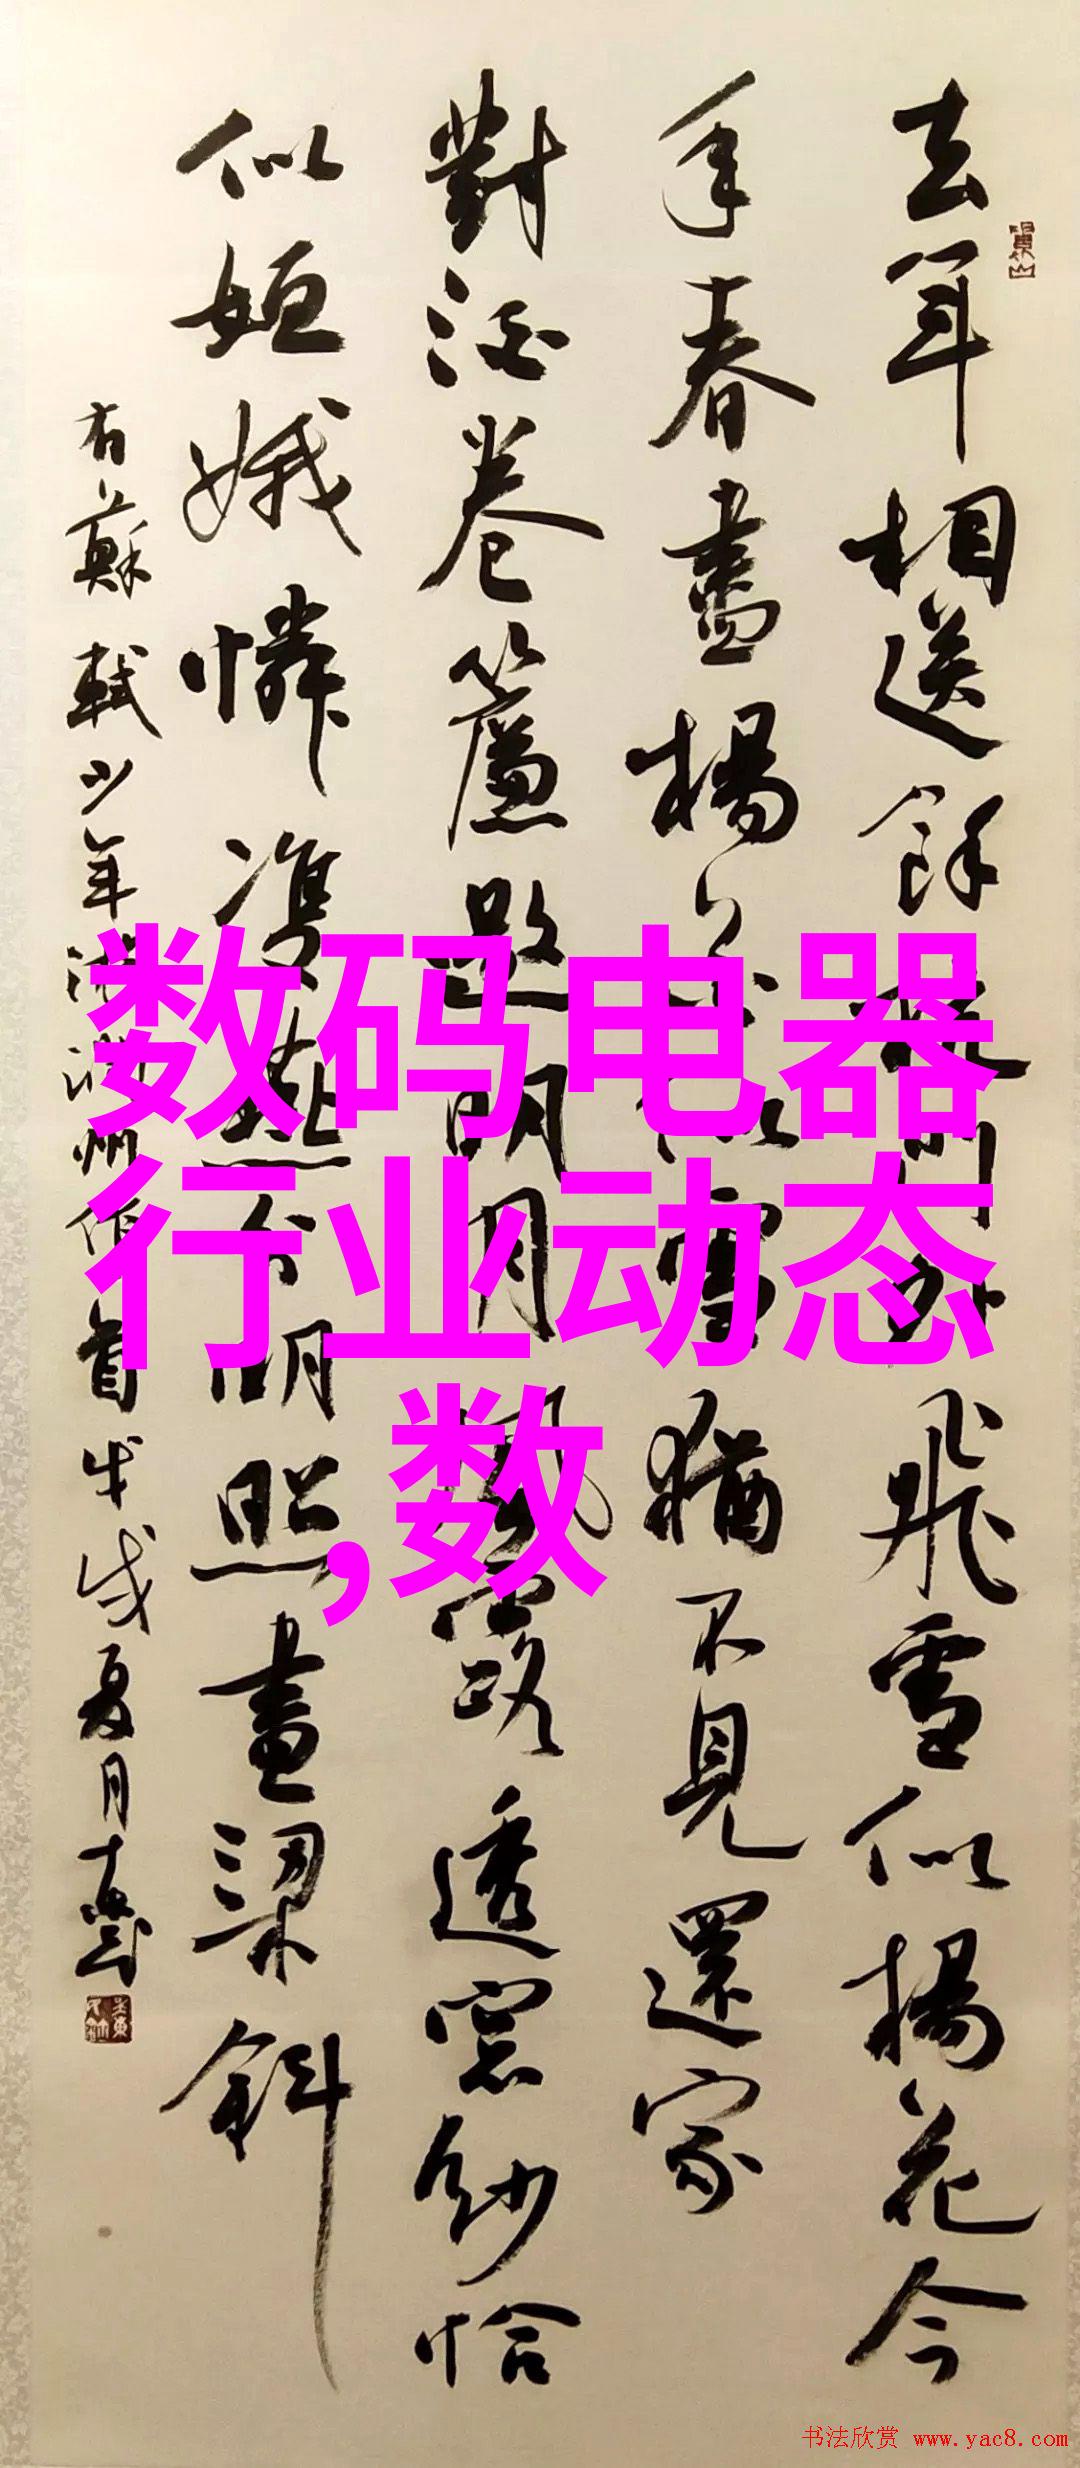 去年相送餘杭門外飛雪似楊花今
年春盡楊花似雪猶不見還家
對酒卷簾邀明月風露透窓紗恰
似姮娥憐雙燕分明照畫梁斜
右蘇軾少年游潤州作首戊戌夏月
数码电器
行业动态
,数
书法欣赏 www.yac8.com